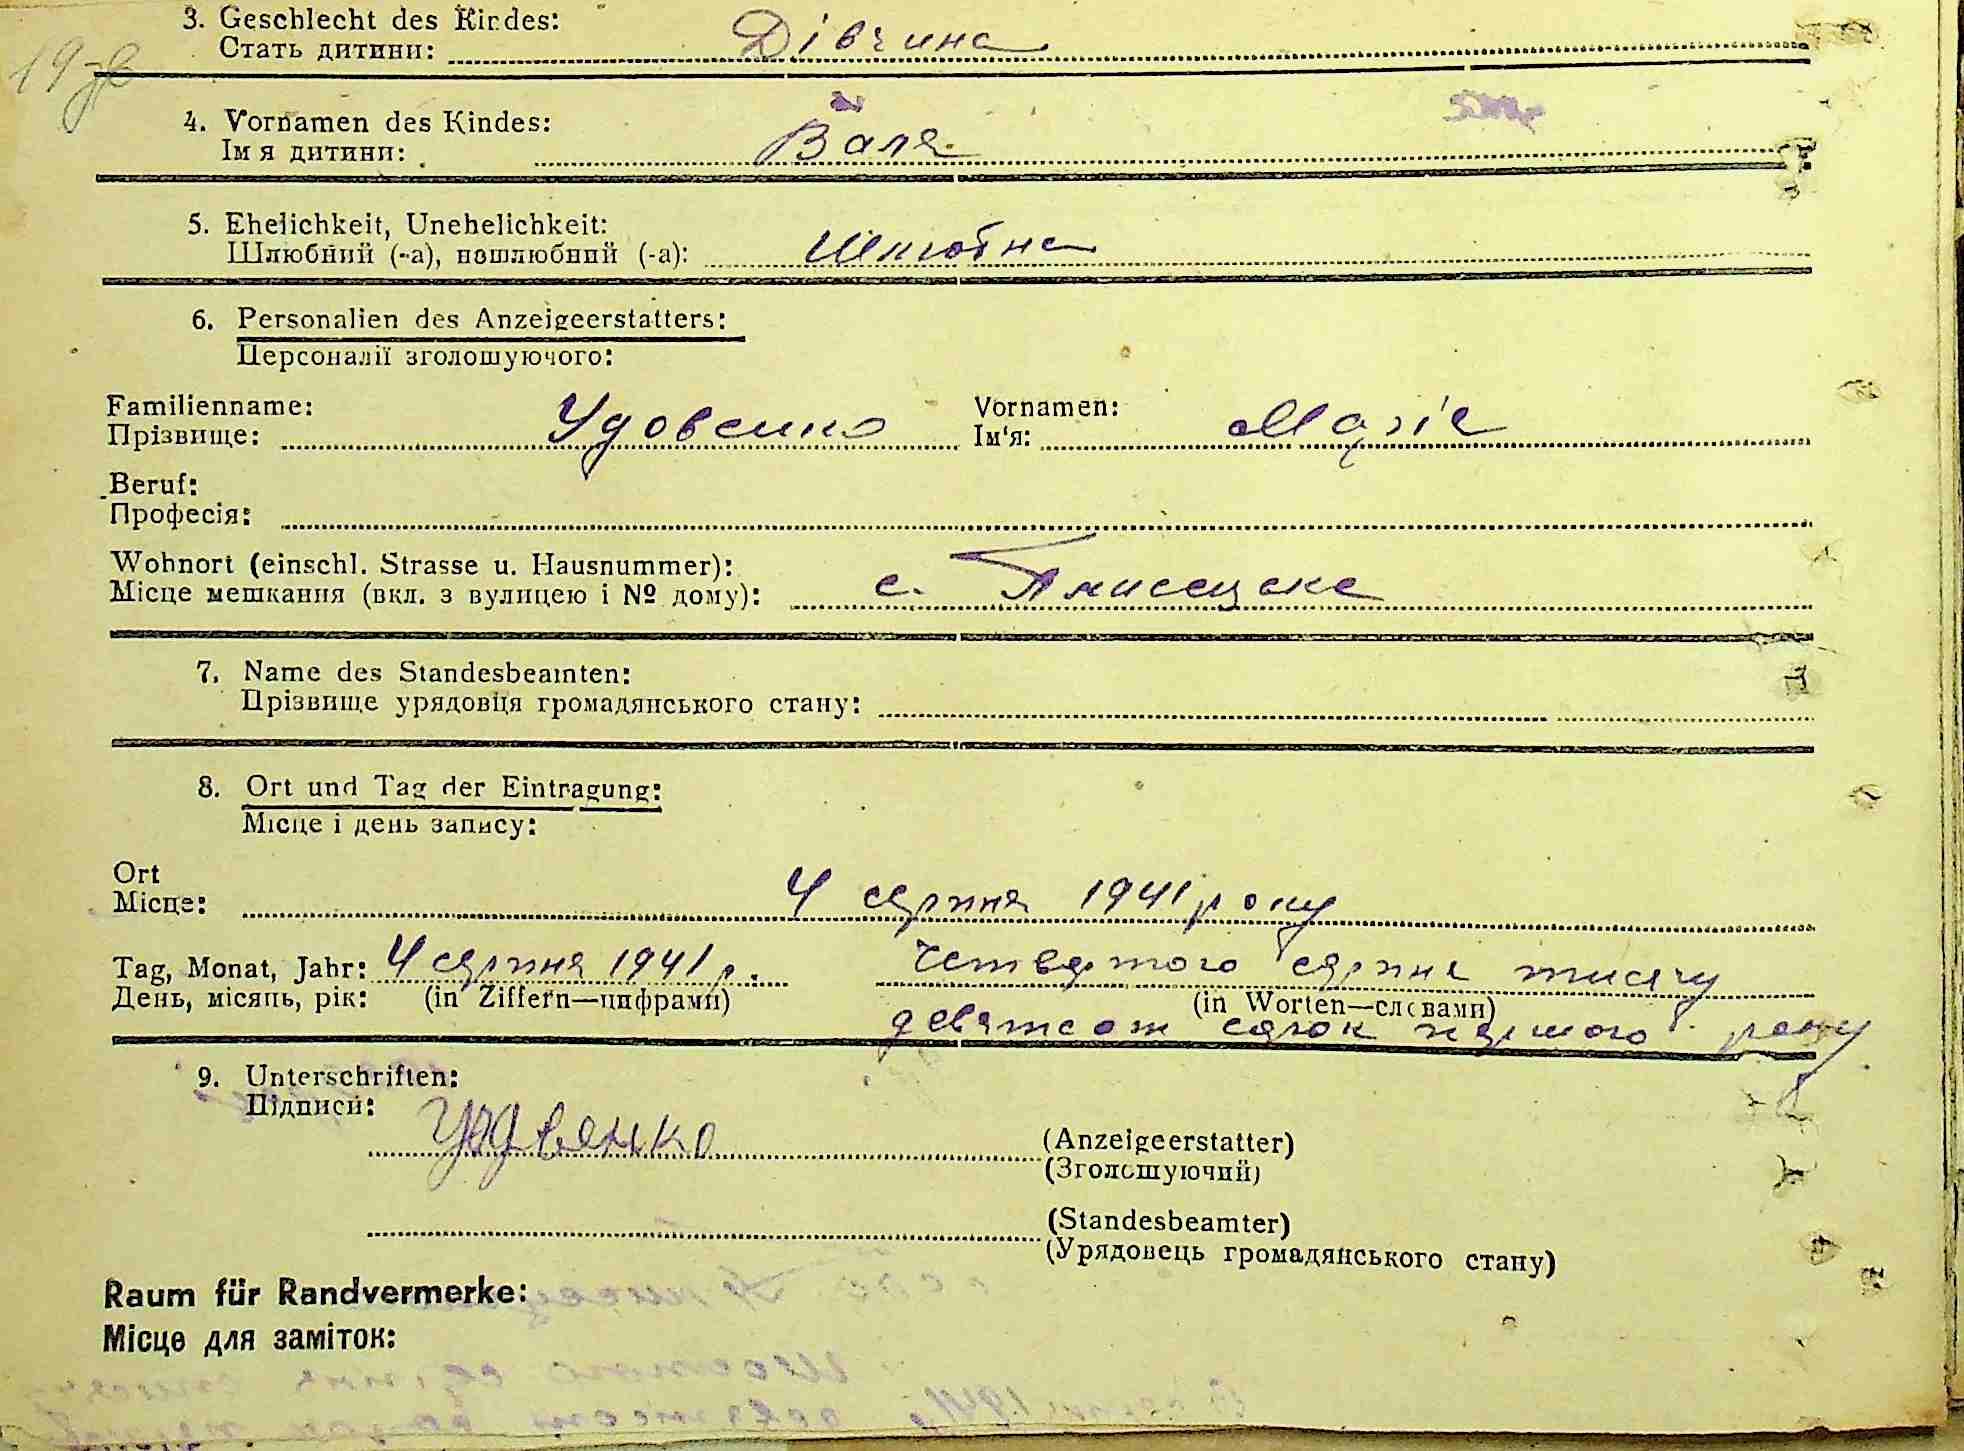 3. Geschlecht des Kindes:
Стать дитини: Дівчина
4. Vornamen des Kindes:
Ім я дитини: Валя
5. Ehelichkeit, Unehelichkeit:
Шлюбний (-а), нешлюбний (-а): Шлюбна
6. Personalien des Anzeigeerstatters:
Персоналії зголошуючого:
Familienname: Vornamen:
Прізвище: Удовенко Ім'я: Марія
Beruf:
Професія:
Wohnort (einschl. Strasse u. Hausnummer):
Місце мешкання (вкл. з вулицею і № дому): с. Плисецьке
7. Name des Standesbeamten:
Прізвище урядовця громадянського стану:
8. Ort und Tag der Eintragung:
Місце і день запису:
Ort
Місце: 4 серпня 1941 року
Tag, Monat, Jahr: 4 серпня 1941 р. четвертого серпня тисячу
День, місяць, рік: (in Ziffern—цифрами) (in Worten—словами)
девятсот сорок першого року
9. Unterschriften:
Підписи:
Удовенко (Anzeigeerstatter)
(Зголошуючий)
(Standesbeamter)
(Урядовець громадянського стану)
Raum für Randvermerke:
Місце для заміток: